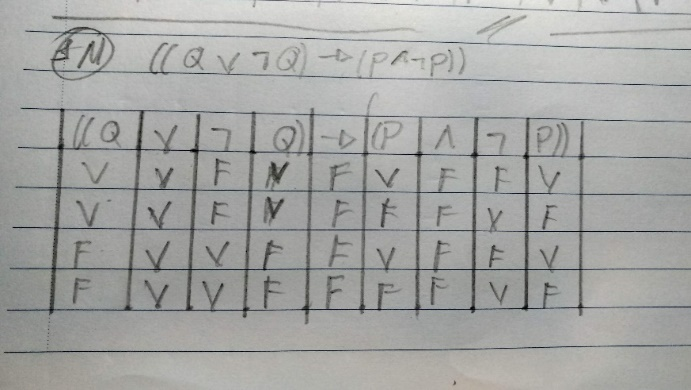 N) ((Q ∨ ¬ Q) → (P ∧ ¬ P))
((Q ∨ ¬ Q) → (P ∧ ¬ P))
V V F V F V F F V
V V F V F F F V F
F V V F F V F F V
F V V F F F F V F